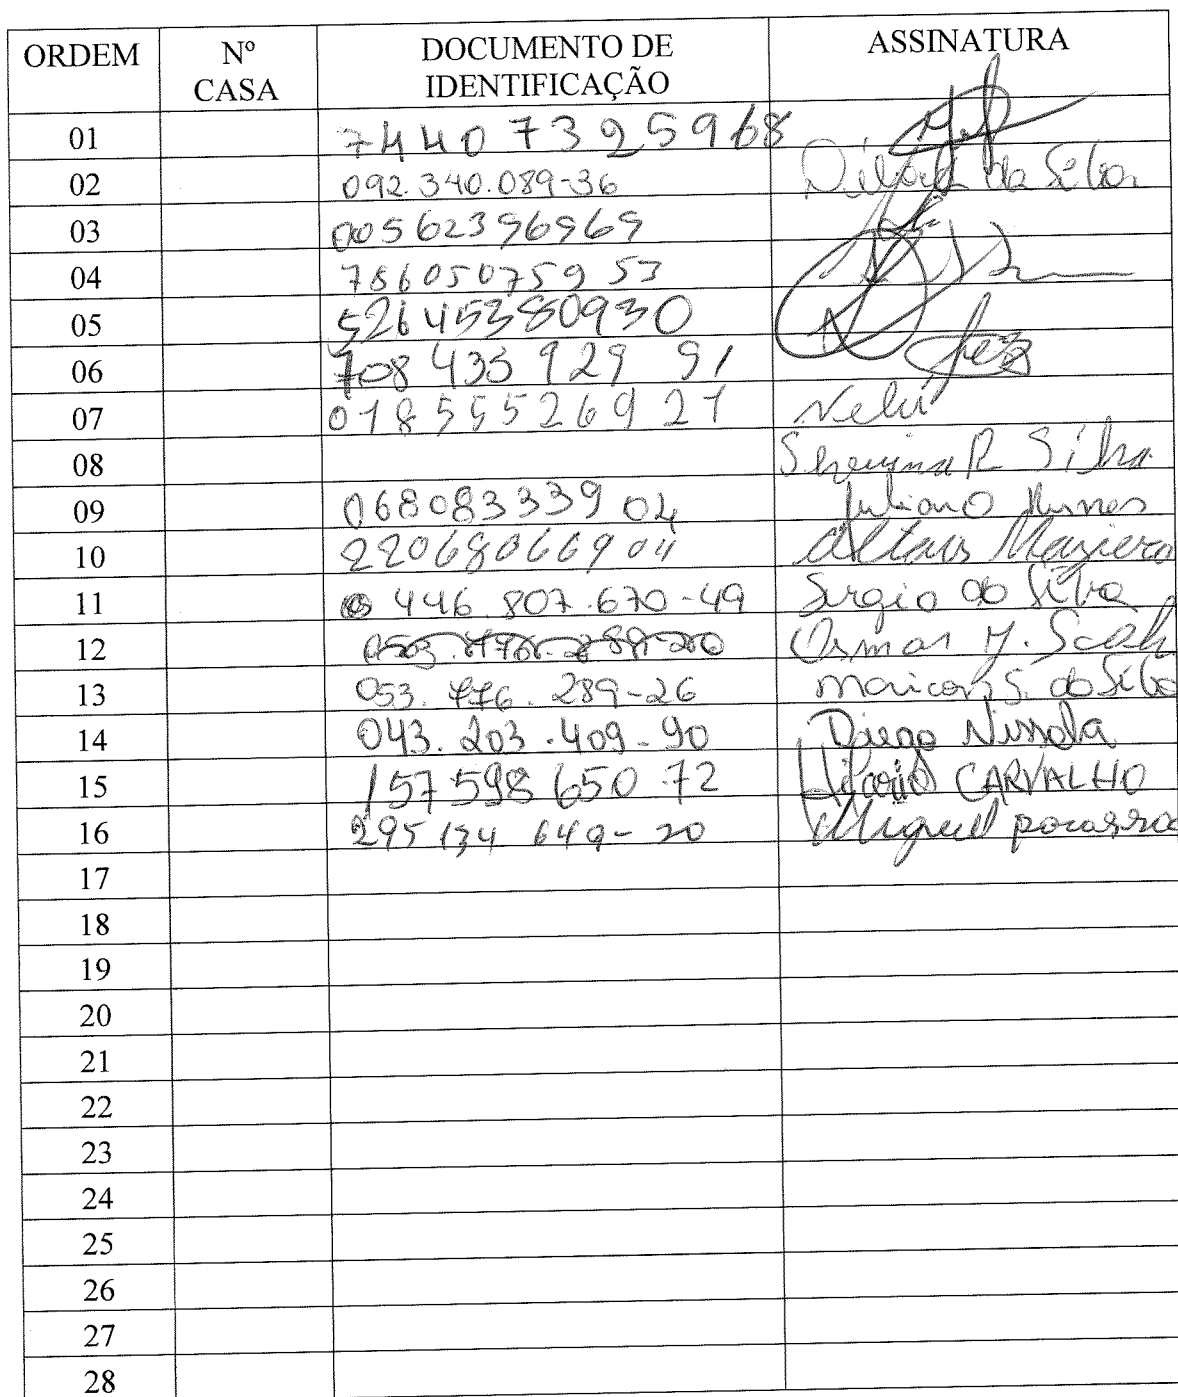 ORDEM Nº CASA DOCUMENTO DE IDENTIFICAÇÃO ASSINATURA
01 74407325968
02 092.340.089-36 da Silva
03 00562396969
04 78605075953
05 52645380930
06 708 433 929 91
07 01855526921 Neli
08 R Silva
09 06808333904 Juliano Nunes
10 22068066904 Maziero
11 446.807.670-49 Sergio da Silva
12 Osmar
13 053. 776. 289-26 Maicon S. da Silva
14 043.203.409-90 Diego
15 157 598 650 72 CARVALHO
16 295 134 649-20 Miguel
17
18
19
20
21
22
23
24
25
26
27
28